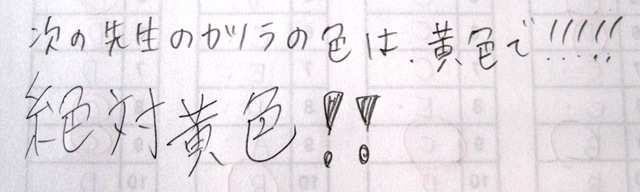 次の先生のガリラの色は、黄色で!!!!!
絶対黄色!!